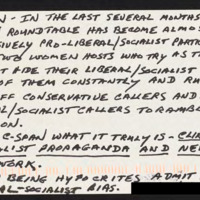 N - IN THE LAST SEVERAL MONTHS
ROUNDTABLE HAS BECOME ALMOS
SIVELY PRO-LIBERAL/SOCIALIST PARTI
TWO WOMEN HOSTS WHO TRY AS T
T HIDE THEIR LIBERAL/SOCIALIST
OF THEM CONSTANTLY AND RU
OFF CONSERVATIVE CALLERS AND
AL/SOCIALIST CALLERS TO RAMBL
ON.
C-SPAN WHAT IT TRULY IS - CLIN
LIST PROPAGANDA AND NE
WORK.
BEING HYPOCRITES ADMIT
AL-SOCIALIST BIAS.